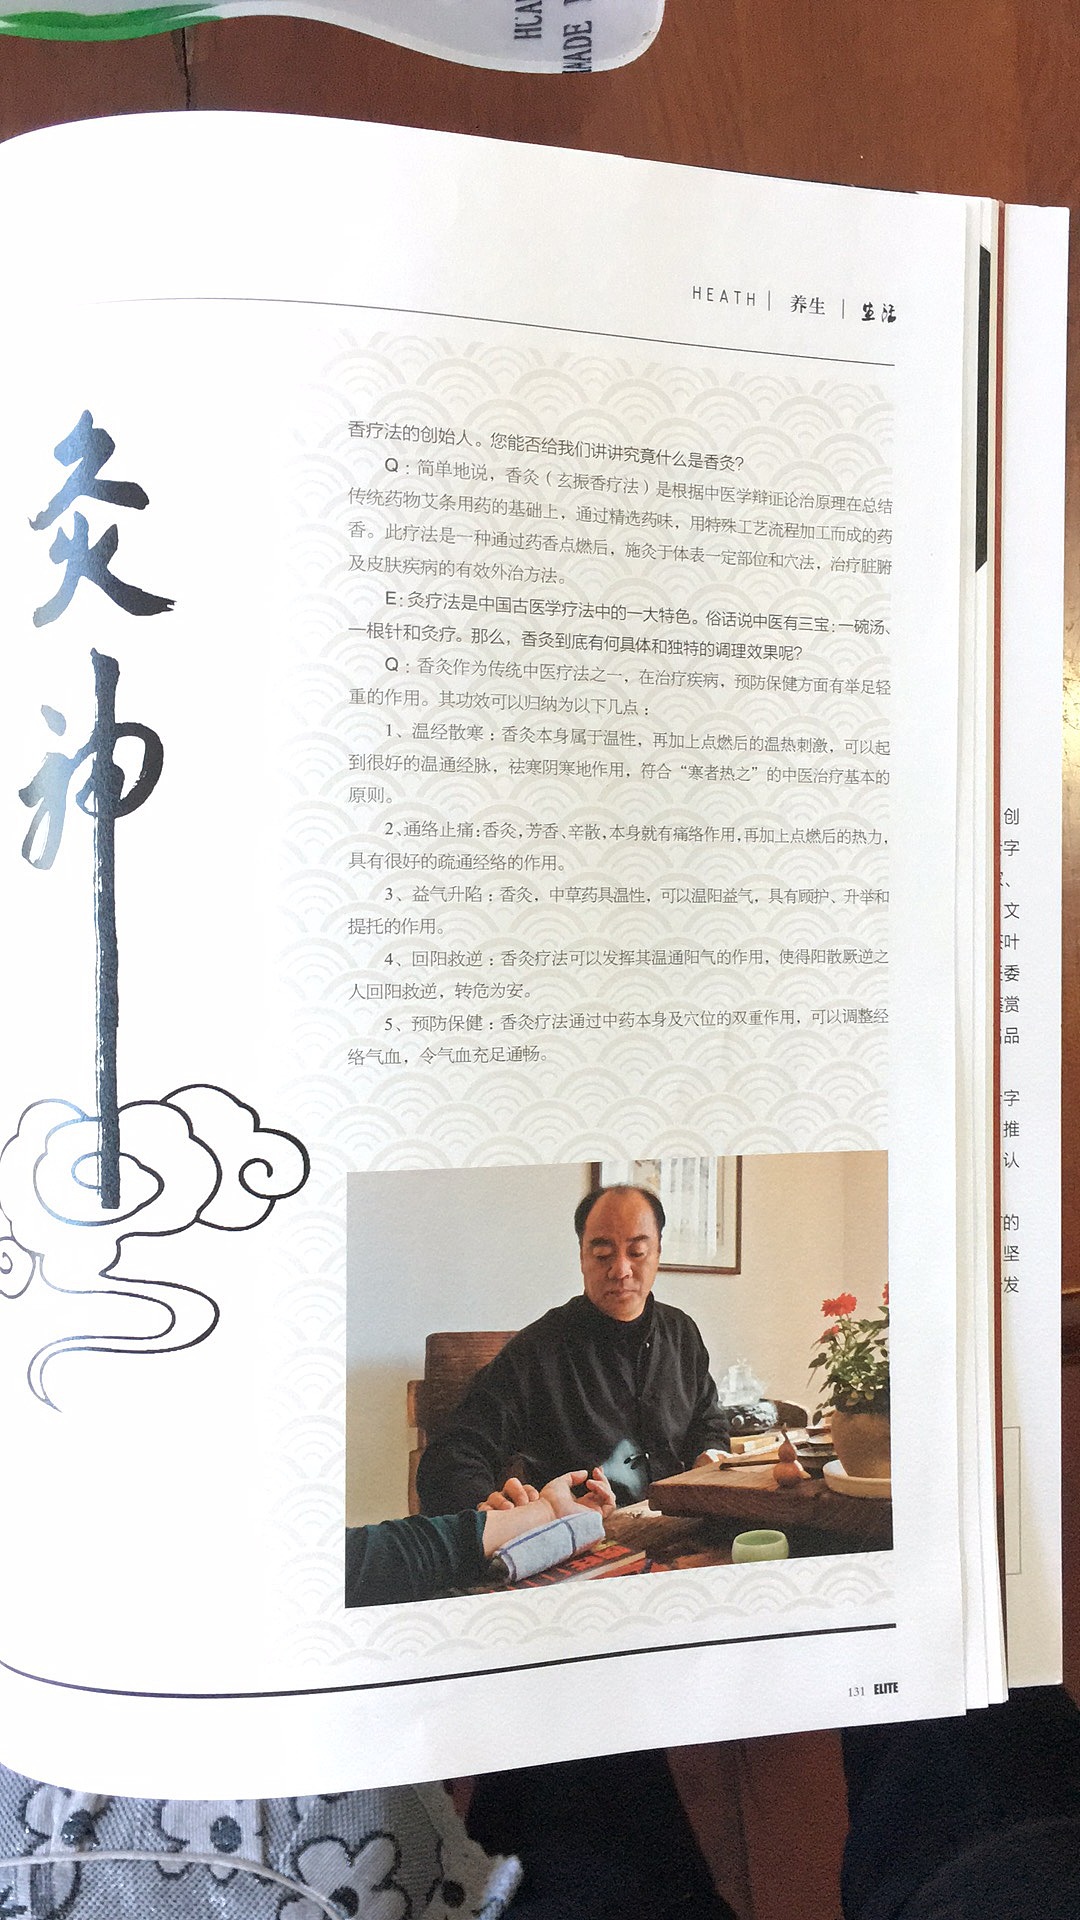 HEATH | 养生 | 生活
灸
神
香疗法的创始人。您能否给我们讲讲究竟什么是香灸?
Q:简单地说,香灸(玄振香疗法)是根据中医学辩证论治原理在总结
传统药物艾条用药的基础上,通过精选药味,用特殊工艺流程加工而成的药
香。此疗法是一种通过药香点燃后,施灸于体表一定部位和穴法,治疗脏腑
及皮肤疾病的有效外治方法。
E:灸疗法是中国古医学疗法中的一大特色。俗话说中医有三宝:一碗汤、
一根针和灸疗。那么,香灸到底有何具体和独特的调理效果呢?
Q:香灸作为传统中医疗法之一,在治疗疾病,预防保健方面有举足轻
重的作用。其功效可以归纳为以下几点:
1、温经散寒:香灸本身属于温性,再加上点燃后的温热刺激,可以起
到很好的温通经脉,祛寒阴寒地作用,符合“寒者热之”的中医治疗基本的
原则。
2、通络止痛:香灸,芳香、辛散,本身就有痛络作用,再加上点燃后的热力,
具有很好的疏通经络的作用。
3、益气升陷:香灸,中草药具温性,可以温阳益气,具有顾护、升举和
提托的作用。
4、回阳救逆:香灸疗法可以发挥其温通阳气的作用,使得阳散厥逆之
人回阳救逆,转危为安。
5、预防保健:香灸疗法通过中药本身及穴位的双重作用,可以调整经
络气血,令气血充足通畅。
131 ELITE
创
字
、
文
叶
委
赏
品
字
推
认
的
坚
发
MADE